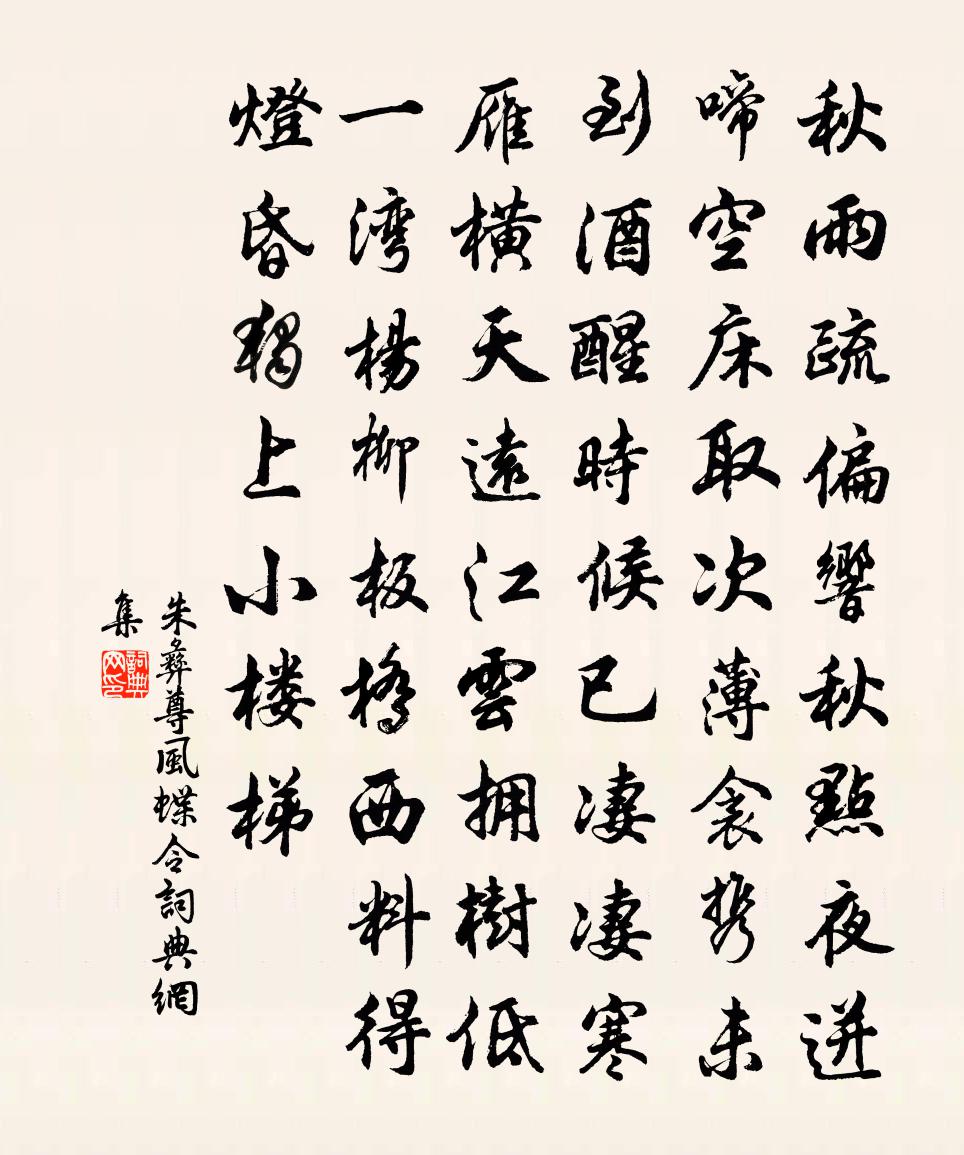 秋雨疏偏響秋點夜迸
啼空床取次薄衾携未
到酒醒時候已凄凄寒
雁横天遠江雲拥樹低
一湾楊柳板橋西料得
燈昏獨上小楼梯
朱彝尊風蝶令詞典網
集
詞典网印